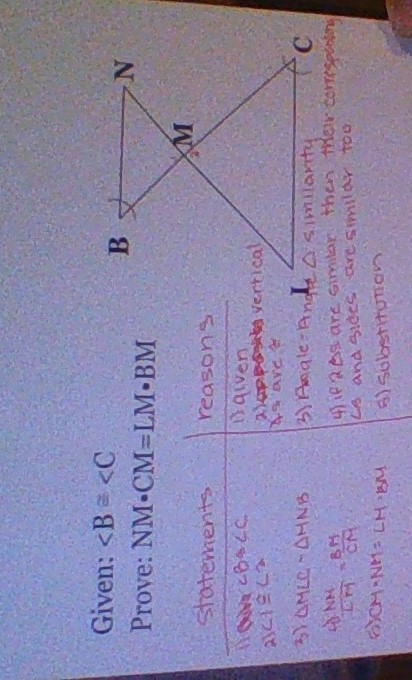 Given: <B ≅ <C
Prove: NM•CM=LM•BM
B
N
M
C
L
Statements
reasons
1) <B≅<C
1) given
2) <1 ≅ <2
2) vertical
∠s are ≅
3) ΔMLC ~ ΔMNB
3) Angle-Angle Δ similarity
4) NM/LM = BM/CM
4) if 2 Δs are similar then their corresponding
∠s and sides are similar too
5) CM•NM = LM•BM
5) substitution